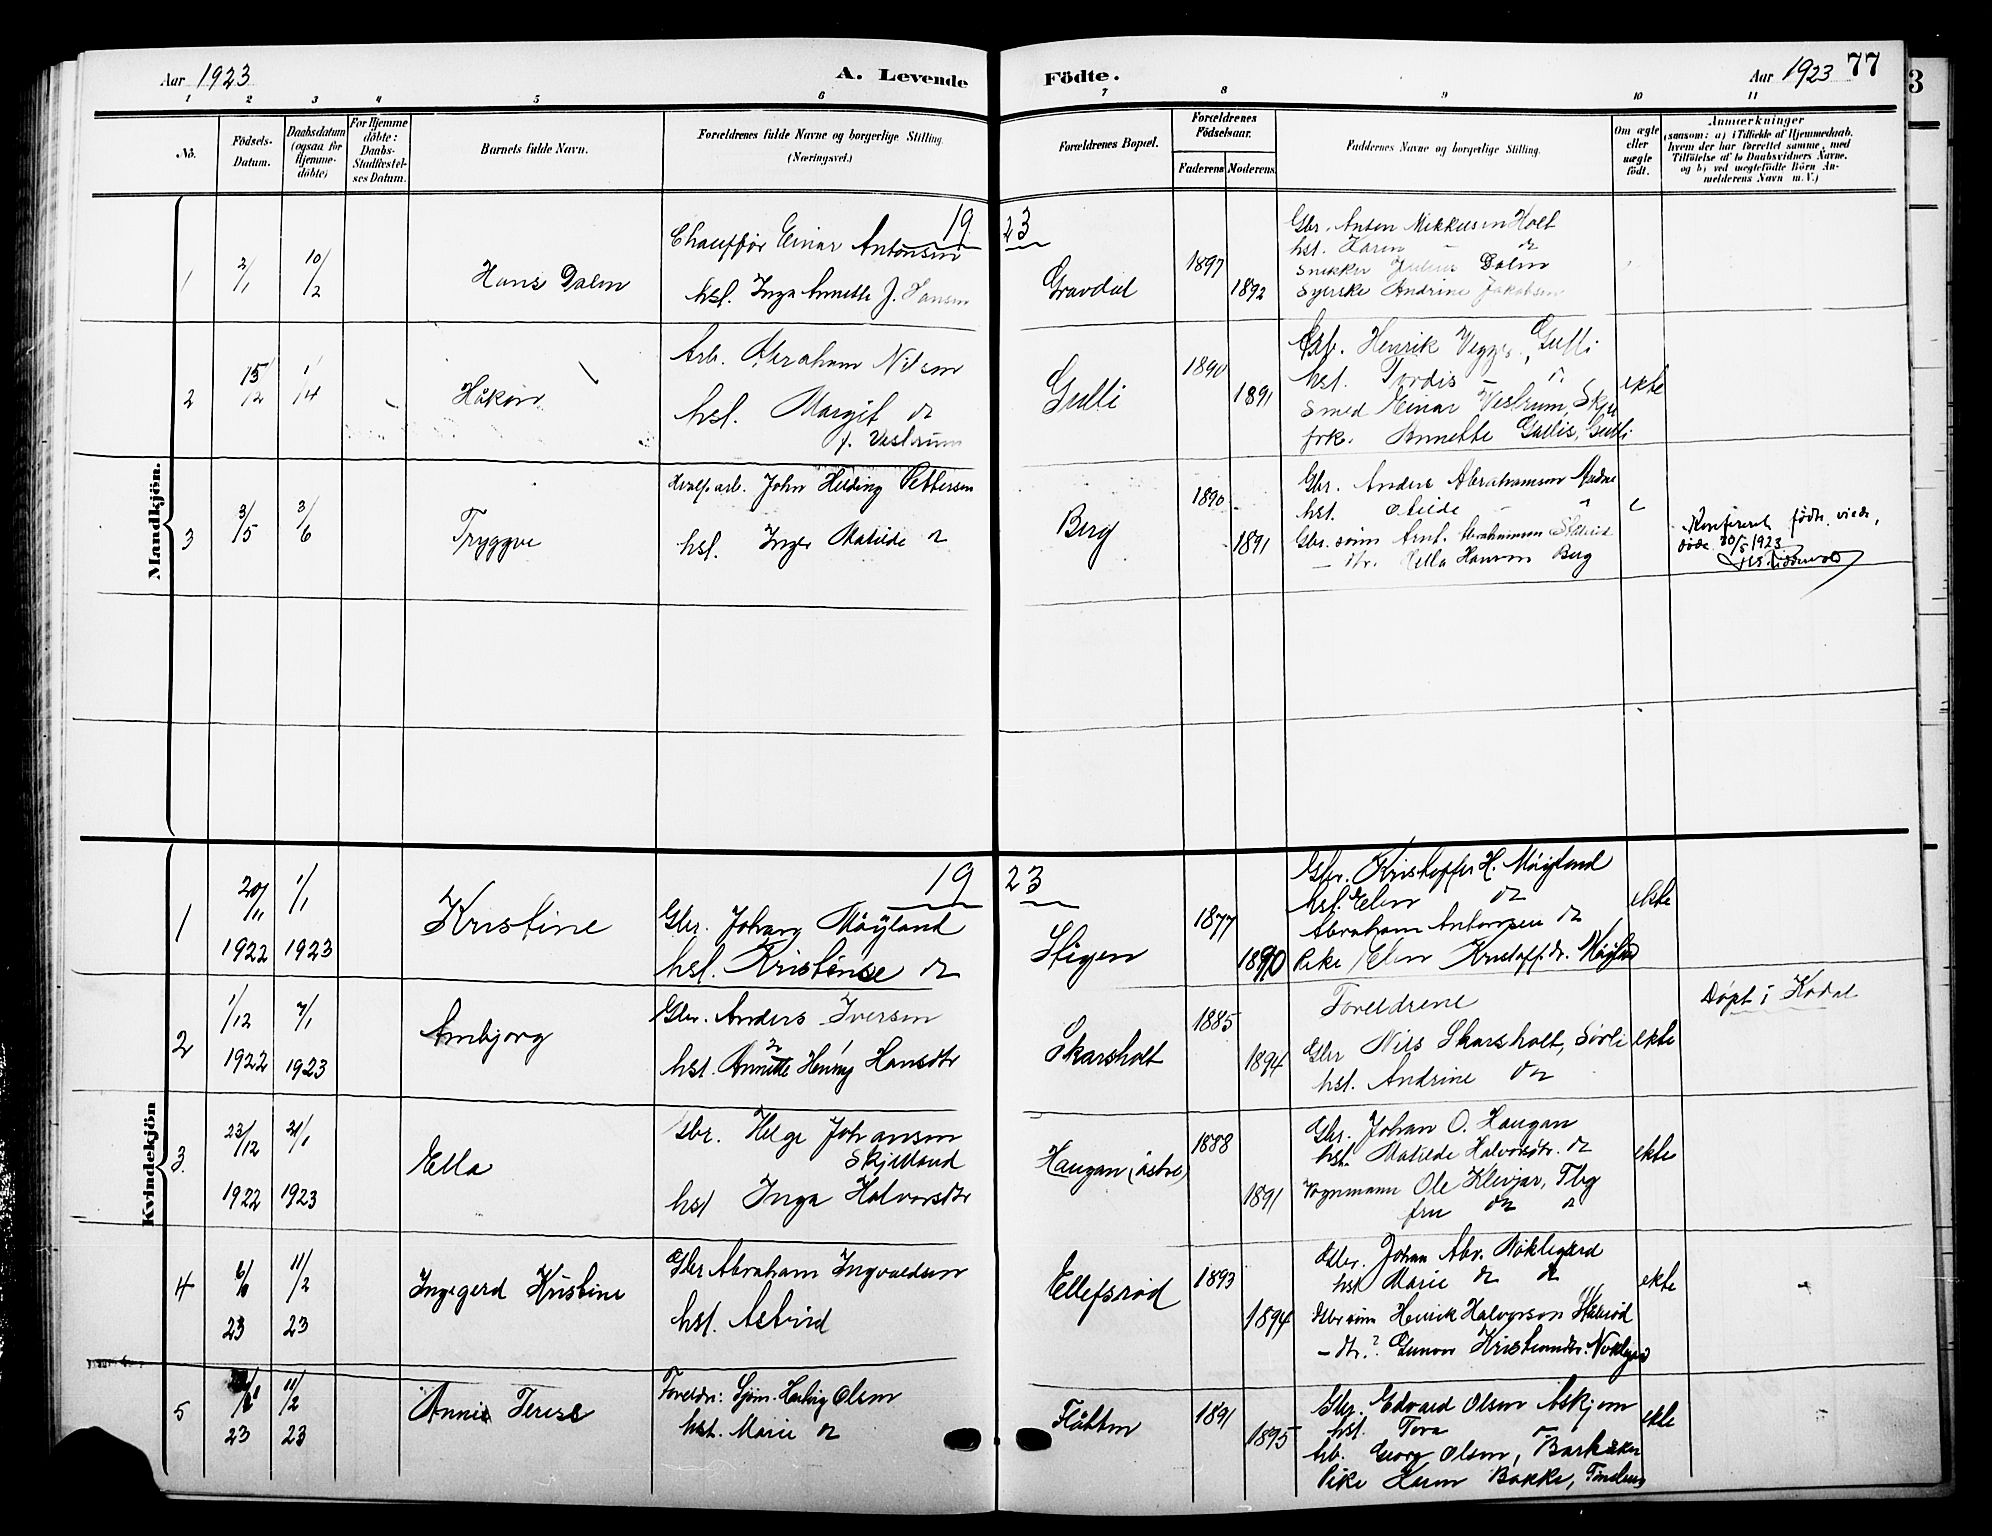 Aar 1923
A. Levende
Födte.
Aar 1923
77
1 2 3 4 5 6 7 8 9 10 11
No.
Födsels-
Datum.
Daabsdatum
(ogsaa for
Hjemme-
döbte)
For Hjemme
döbte:
Daabs-
Stadfæstel-
ses Datum.
Barnets fulde Navn.
Forældrenes fulde Navne og borgerlige Stilling
(Næringsvei.)
Forældrenes Bopæl.
Forældrenes
Födselsaar.
Faderens
Moderens
Faddernes Navne og borgerlige Stilling.
Om ægte
eller
uægte
født.
Anmærkninger
(saasom: a) i Tilfælde af Hjemmedaab,
hvem der har forrettet samme, med
Tilföielse af to Daabsvidners Navne,
og b) ved uægtefödte Börn An-
melderens Navn m. V.)
Mandkjön.
19 23
1
2/1
10/2
Hans Dalen
Chauffør Einar Antonsen
hst. Inga Annette J. Hansen
Gravdal
1897
1892
Gbr. Anton Mikkelsen Holt
hst. Karen
snekker Julius Dalen
Syerske Andrine Jakobsen
2
15/2
1/4
Håkon
Arb. Abraham Nilsen
hst. Margit do
f. Vestrum
Gulli
1890
1891
Arb. Henrik Gulli
hst. Tordis
Smed Einar Vestrum,
frk. Annette Gullis, Gulli
ekte
3
3/5
3/6
Tryggve
John Pettersen
hst. Inger Matilde do
Berg
1890
1891
Gbr. Anders Abrahamsen
hst.
Gbr. sønn Arnt Abrahamsen
– dtr. Ella Hansen Berg
e
Konfirert født, viede,
døde 30/5 1923
Kvindekjön
19 23
1
20/11
1922
1/1
1923
Kristine
Gbr. Johan Møyland
hst. Kristense do
Stigen
1877
1890
Gbr. Kristoffer H. Møyland
hst. Elen do
Abraham Antonsen do
Pike Elen Kristoffdr. Møyland
ekte
2
1/12
1922
7/1
1923
Ambjørg
Gbr. Anders Iversen
hst. Annette Henny Hansdtr
Skarsholt
1885
1894
Foreldrene
Gbr Nils Skarsholt, Sørli
hst. Andrine do
ekte
Døpt i Kodal
3.
23/12
1922
21/1
1923
Ella
Gbr. Helge Johansen
Skjelland
hst Inga Halvorsdtr
Haugan (østre)
1888
1891
Gbr. Johan O. Haugan
hst. Matilde Halvorsdtr. do
Vognmann Ole Klevjar, Tbg
fru do
ekte
4
6/1
23
11/2
23
Ingegerd Kristine
Gbr Abraham Ingvaldsen
hst. Astrid
Ellefsrød
1893
1894
Gbr. Johan Abr.
hst Marie do do
Gbr sønn Henrik Halvorsen
– dtr. Gunvor
ekte
5
23
11/2
23
Annie Terese
Foreldr: Sjøm. Herbrig Olsen
hst. Marie do
Flåtten
1891
1895
Gbr. Edvard Olsen Askjem
hst. Tora
Georg Olsen, Barkåker
Pike Karen Bakke, Tønsberg
ekte